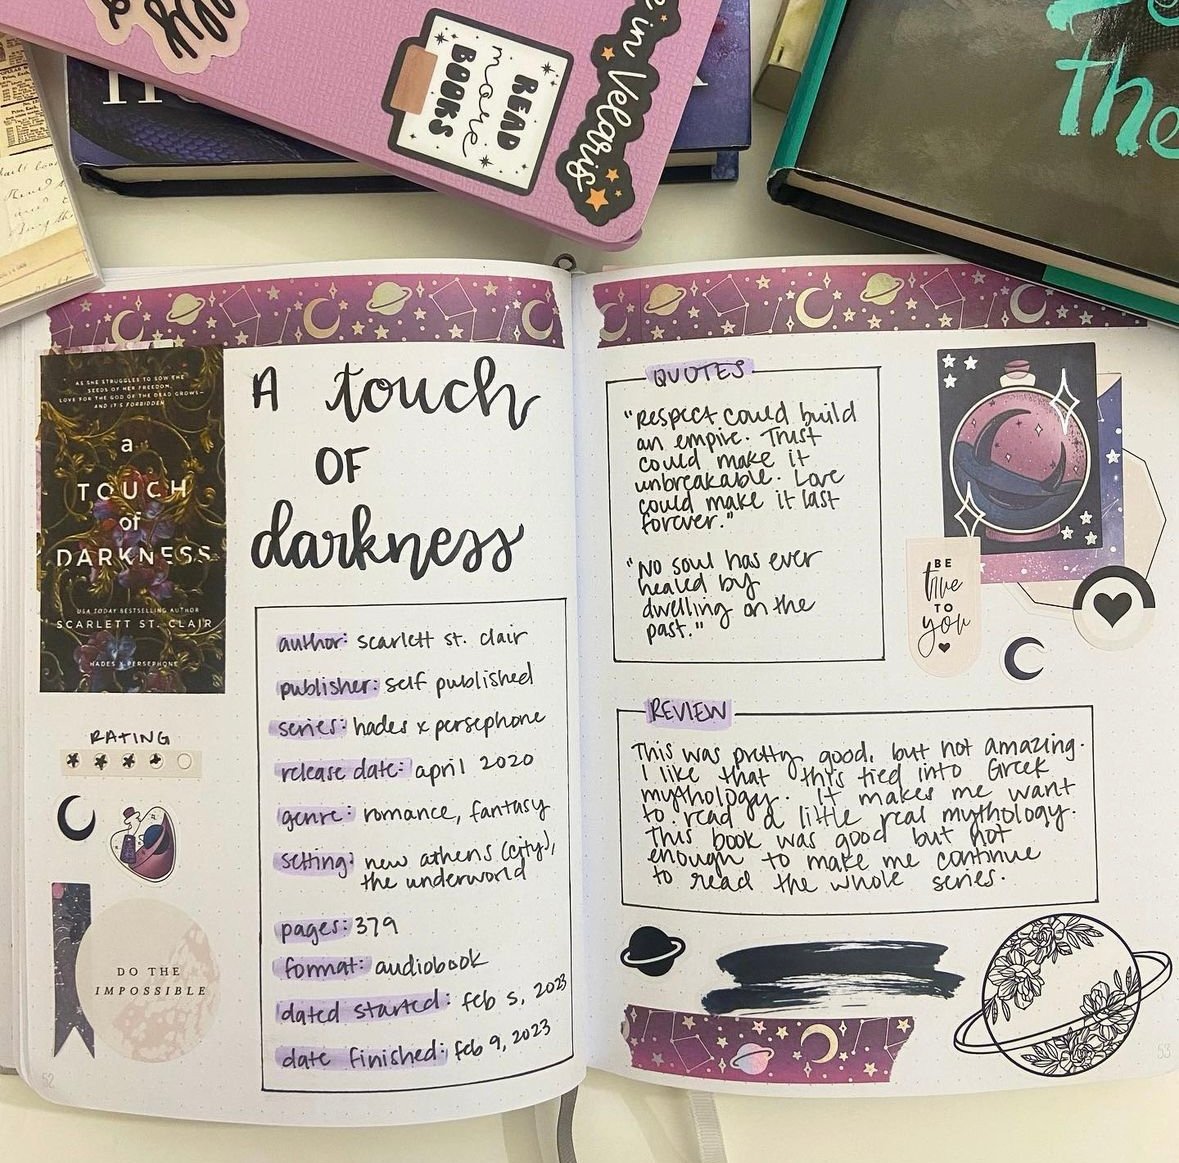 READ
more
BOOKS
in Velaris
the
AS SHE STRUGGLES TO SOW THE
SEEDS OF HER FREEDOM,
LOVE FOR THE GOD OF THE DEAD GROWS—
AND IT'S FORBIDDEN
a
TOUCH
of
DARKNESS
USA TODAY BESTSELLING AUTHOR
SCARLETT ST. CLAIR
HADES X PERSEPHONE
A touch
OF
darkness
RATING
DO THE
IMPOSSIBLE
52
author: scarlett st. clair
publisher: self published
series: hades x persephone
release date: april 2020
genre: romance, fantasy
setting: new athens (city),
the underworld
pages: 379
format: audiobook
dated started: feb 5, 2023
date finished: feb 9, 2023
QUOTES
"Respect could build
an empire. Trust
could make it
unbreakable. Love
could make it last
forever."
"No soul has ever
healed by
dwelling on the
past."
BE
true
TO
you
REVIEW
This was pretty good, but not amazing.
I like that this tied into Greek
mythology. It makes me want
to read a little real mythology.
This book was good but not
enough to make me continue
to read the whole series.
53